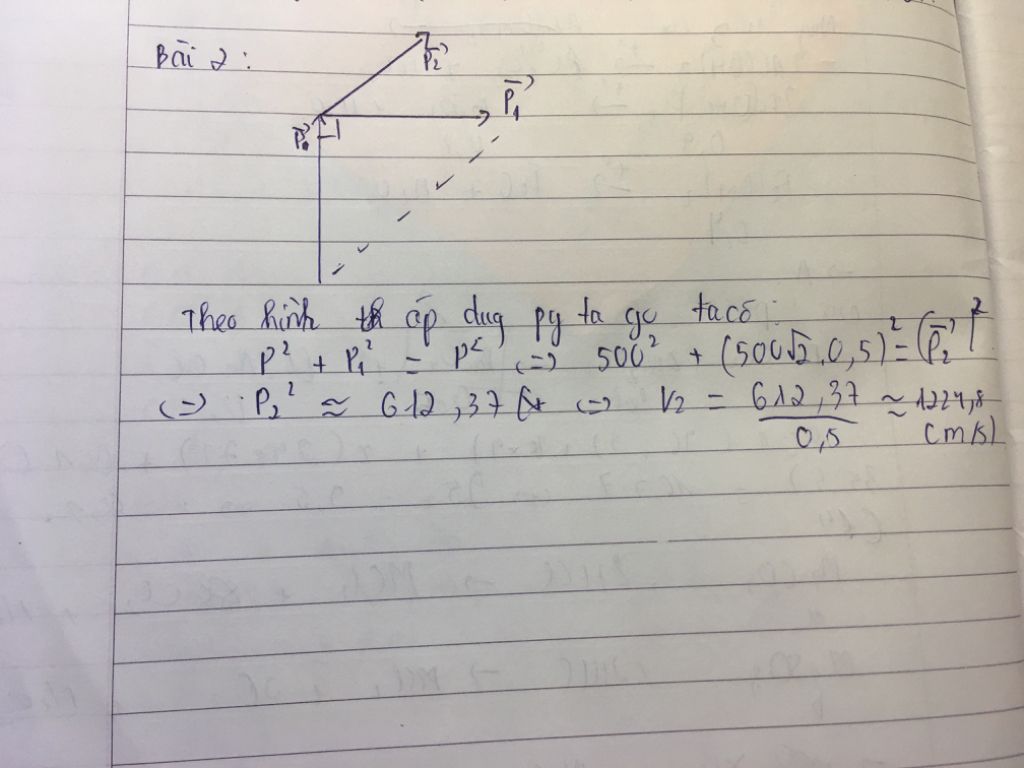 Bài 2:
P₂
P₁
P₀
Theo hình áp dug py ta go ta có:
P² + P₁² = P² <=> 500² + (500√2.0,5)² = (P₂)²
<=> P₂² ≈ 612,37 <=> V₂ = 612,37 / 0,5 ≈ 1224,8 (m/s)